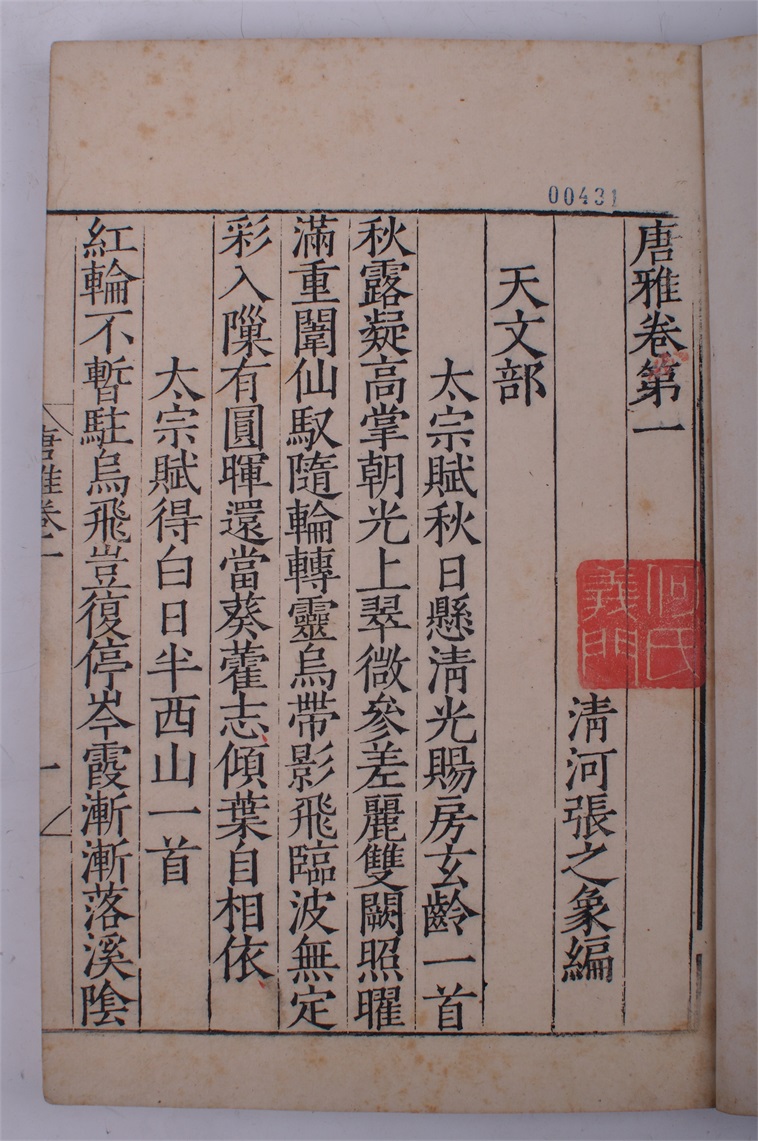 00431
唐雅卷第一
清河張之象編
天文部
太宗賦秋日懸清光賜房玄齡一首
秋露凝高掌朝光上翠微參差麗雙闕照曜
滿重闈仙馭隨輪轉靈烏帶影飛臨波無定
彩入隟有圓暉還當葵藿志傾葉自相依
太宗賦得白日半西山一首
紅輪不暫駐烏飛豈復停岑霞漸漸落溪陰
唐雅卷一
一
何氏
義門